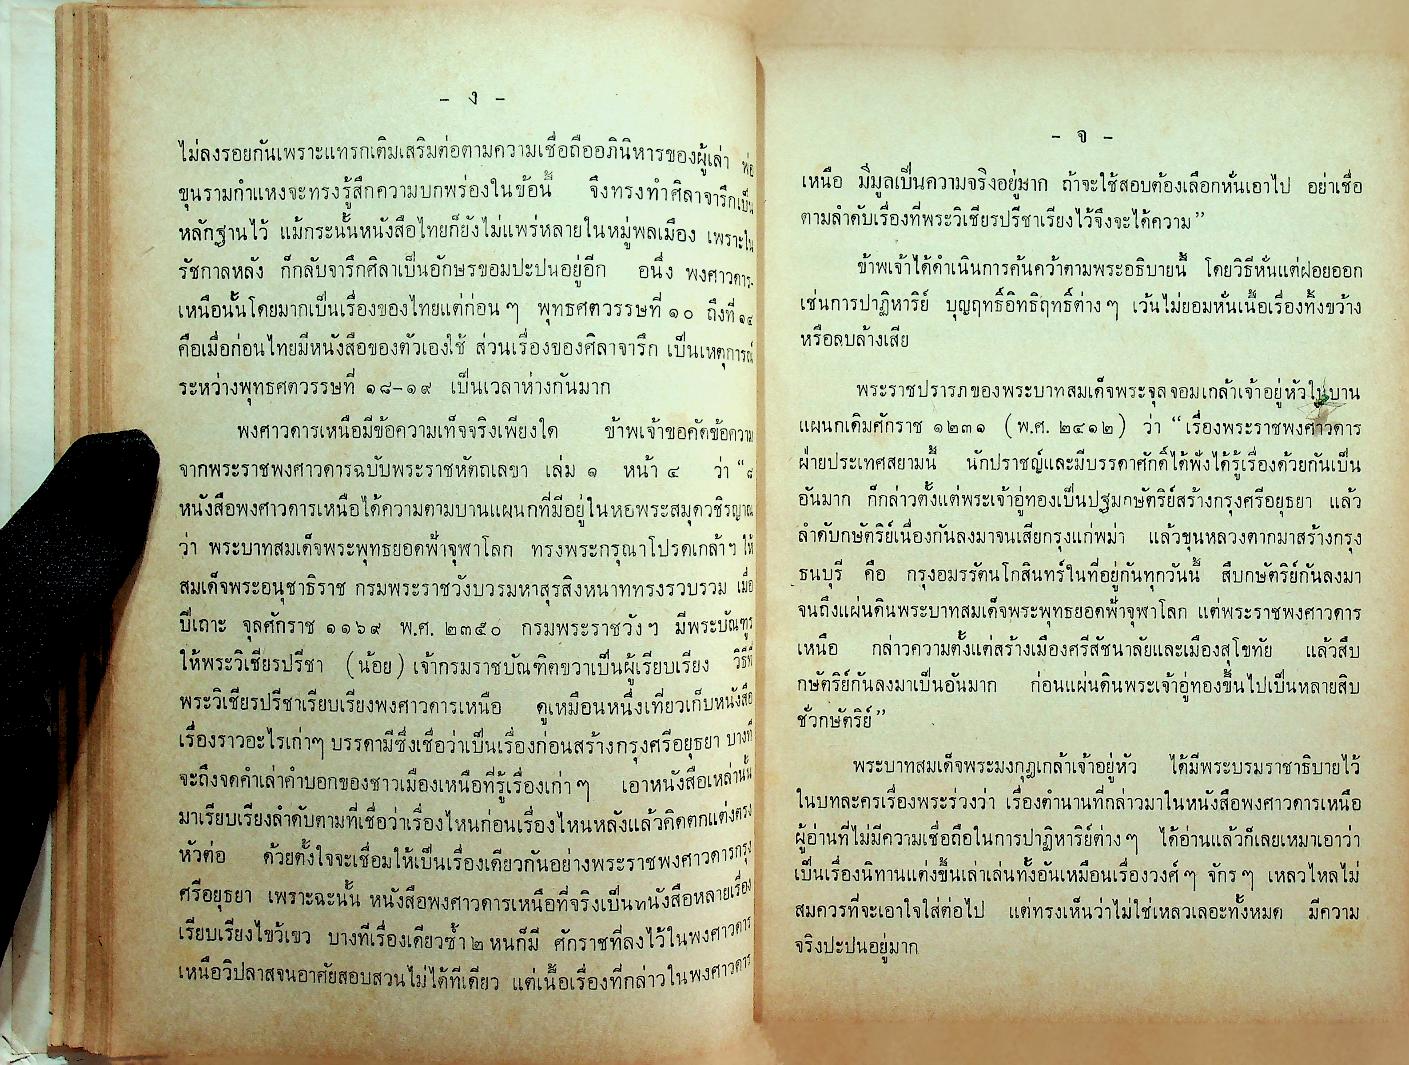 - ง -
ไม่ลงรอยกันเพราะแทรกเติมเสริมต่อตามความเชื่อถืออภินิหารของผู้เล่า พ่อ
ขุนรามกำแหงจะทรงรู้สึกความบกพร่องในข้อนี้ จึงทรงทำศิลาจารึกเป็น
หลักฐานไว้ แม้กระนั้นหนังสือไทยก็ยังไม่แพร่หลายในหมู่พลเมือง เพราะใน
รัชกาลหลัง ก็กลับจารึกศิลาเป็นอักษรขอมปะปนอยู่อีก อนึ่ง พงศาวดาร-
เหนือนั้นโดยมากเป็นเรื่องของไทยแต่ก่อน ๆ พุทธศตวรรษที่ ๑๐ ถึงที่ ๑๔
คือเมื่อก่อนไทยมีหนังสือของตัวเองใช้ ส่วนเรื่องของศิลาจารึก เป็นเหตุการณ์
ระหว่างพุทธศตวรรษที่ ๑๘-๑๙ เป็นเวลาห่างกันมาก
พงศาวดารเหนือมีข้อความเท็จจริงเพียงใด ข้าพเจ้าขอคัดข้อความ
จากพระราชพงศาวดารฉบับพระราชหัตถเลขา เล่ม ๑ หน้า ๔ ว่า “๘
หนังสือพงศาวดารเหนือได้ความตามบานแผนกที่มีอยู่ในหอพระสมุดวชิรญาณ
ว่า พระบาทสมเด็จพระพุทธยอดฟ้าจุฬาโลก ทรงพระกรุณาโปรดเกล้าฯ ให้
สมเด็จพระอนุชาธิราช กรมพระราชวังบวรมหาสุรสิงหนาททรงรวบรวม เมื่อ
ปีเถาะ จุลศักราช ๑๑๖๙ พ.ศ. ๒๓๕๐ กรมพระราชวังฯ มีพระบัณฑูร
ให้พระวิเชียรปรีชา (น้อย) เจ้ากรมราชบัณฑิตขวาเป็นผู้เรียบเรียง วิธีที่
พระวิเชียรปรีชาเรียบเรียงพงศาวดารเหนือ ดูเหมือนหนึ่งเที่ยวเก็บหนังสือ
เรื่องราวอะไรเก่าๆ บรรดามีซึ่งเชื่อว่าเป็นเรื่องก่อนสร้างกรุงศรีอยุธยา บางที
จะถึงจดคำเล่าคำบอกของชาวเมืองเหนือที่รู้เรื่องเก่า ๆ เอาหนังสือเหล่านั้น
มาเรียบเรียงลำดับตามที่เชื่อว่าเรื่องไหนก่อนเรื่องไหนหลังแล้วคิดตกแต่งตรง
หัวต่อ ด้วยตั้งใจจะเชื่อมให้เป็นเรื่องเดียวกันอย่างพระราชพงศาวดารกรุง
ศรีอยุธยา เพราะฉะนั้น หนังสือพงศาวดารเหนือที่จริงเป็นหนังสือหลายเรื่อง
เรียบเรียงไขว้เขว บางทีเรื่องเดียวซ้ำ ๒ หนก็มี ศักราชที่ลงไว้ในพงศาวดาร
เหนือวิปลาสจนอาศัยสอบสวนไม่ได้ทีเดียว แต่เนื้อเรื่องที่กล่าวในพงศาวดาร
- จ -
เหนือ มีมูลเป็นความจริงอยู่มาก ถ้าจะใช้สอบต้องเลือกหั่นเอาไป อย่าเชื่อ
ตามลำดับเรื่องที่พระวิเชียรปรีชาเรียงไว้จึงจะได้ความ”
ข้าพเจ้าได้ดำเนินการค้นคว้าตามพระอธิบายนี้ โดยวิธีหั่นแต่ฝอยออก
เช่นการปาฏิหาริย์ บุญฤทธิ์อิทธิฤทธิ์ต่าง ๆ เว้นไม่ยอมหั่นเนื้อเรื่องทิ้งขว้าง
หรือลบล้างเสีย
พระราชปรารภของพระบาทสมเด็จพระจุลจอมเกล้าเจ้าอยู่หัวในบาน
แผนกเดิมศักราช ๑๒๓๑ (พ.ศ. ๒๔๑๒) ว่า “เรื่องพระราชพงศาวดาร
ฝ่ายประเทศสยามนี้ นักปราชญ์และมีบรรดาศักดิ์ได้ฟังได้รู้เรื่องด้วยกันเป็น
อันมาก ก็กล่าวตั้งแต่พระเจ้าอู่ทองเป็นปฐมกษัตริย์สร้างกรุงศรีอยุธยา แล้ว
ลำดับกษัตริย์เนื่องกันลงมาจนเสียกรุงแก่พม่า แล้วขุนหลวงตากมาสร้างกรุง
ธนบุรี คือ กรุงอมรรัตนโกสินทร์ในที่อยู่กันทุกวันนี้ สืบกษัตริย์กันลงมา
จนถึงแผ่นดินพระบาทสมเด็จพระพุทธยอดฟ้าจุฬาโลก แต่พระราชพงศาวดาร
เหนือ กล่าวความตั้งแต่สร้างเมืองศรีสัชนาลัยและเมืองสุโขทัย แล้วสืบ
กษัตริย์กันลงมาเป็นอันมาก ก่อนแผ่นดินพระเจ้าอู่ทองขึ้นไปเป็นหลายสิบ
ชั่วกษัตริย์”
พระบาทสมเด็จพระมงกุฎเกล้าเจ้าอยู่หัว ได้มีพระบรมราชาธิบายไว้
ในบทละครเรื่องพระร่วงว่า เรื่องตำนานที่กล่าวมาในหนังสือพงศาวดารเหนือ
ผู้อ่านที่ไม่มีความเชื่อถือในการปาฏิหาริย์ต่าง ๆ ได้อ่านแล้วก็เลยเหมาเอาว่า
เป็นเรื่องนิทานแต่งขึ้นเล่าเล่นทั้งอันเหมือนเรื่องวงศ์ ๆ จักร ๆ เหลวไหลไม่
สมควรที่จะเอาใจใส่ต่อไป แต่ทรงเห็นว่าไม่ใช่เหลวเลอะทั้งหมด มีความ
จริงปะปนอยู่มาก